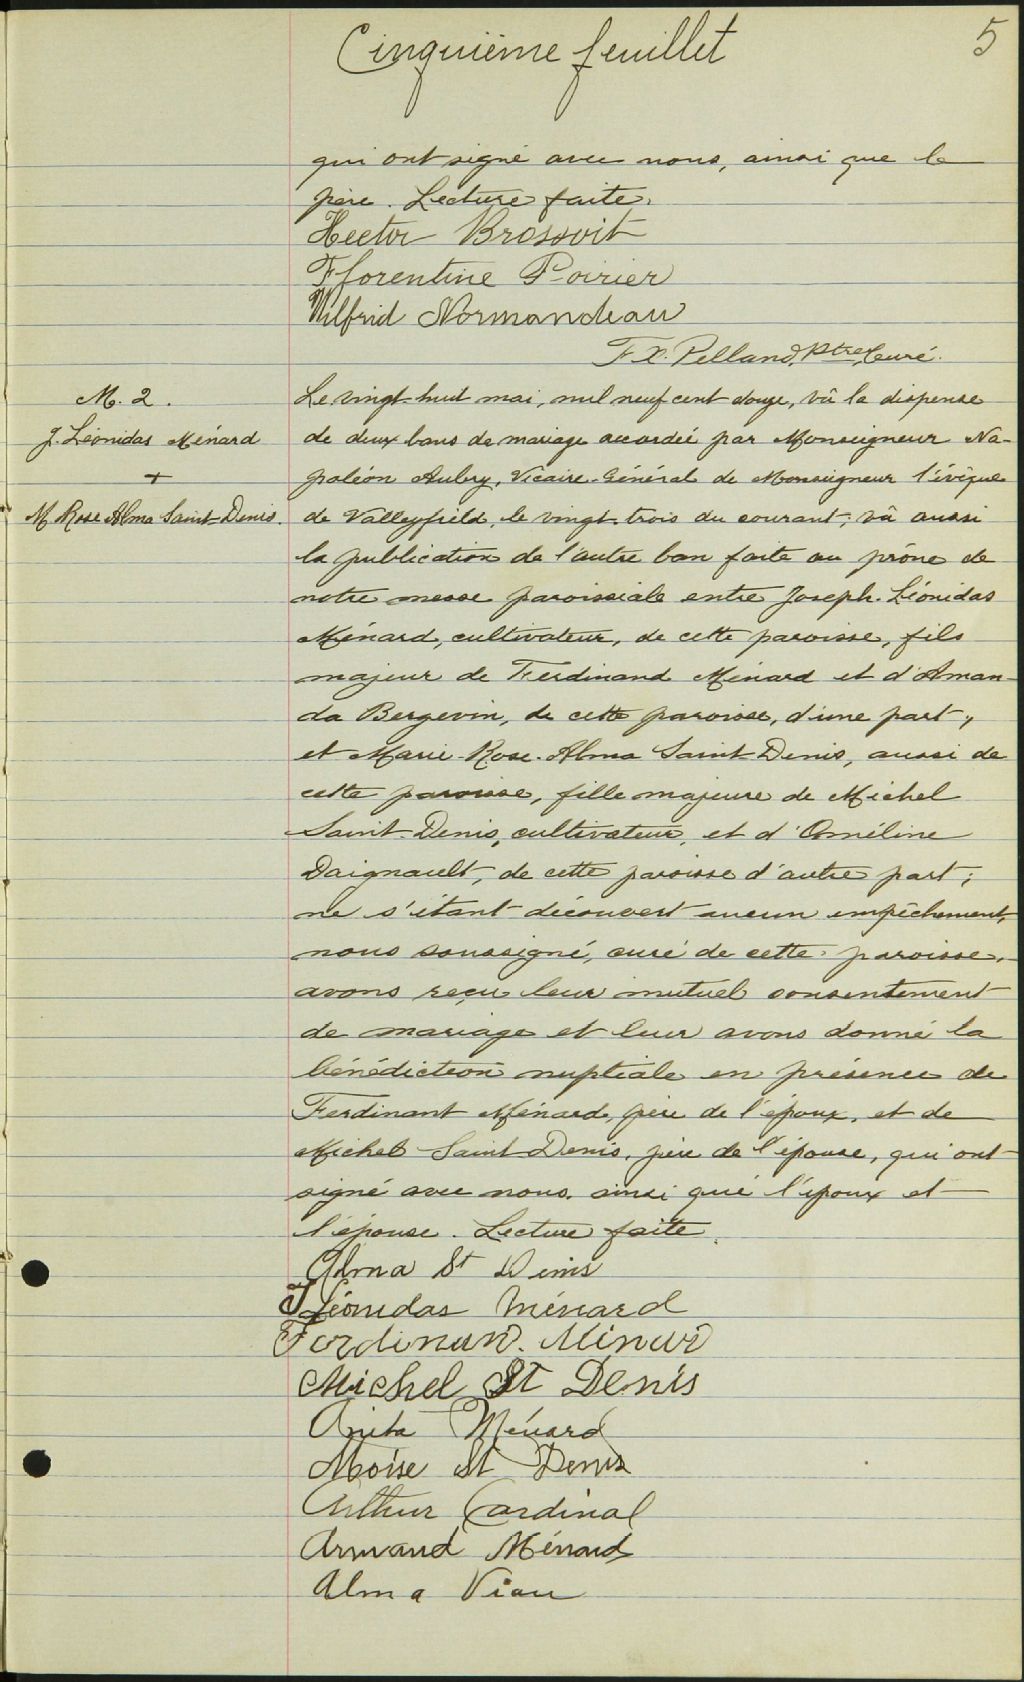 Cinquième feuillet
5
qui ont signé avec nous, ainsi que le
père. Lecture faite.
Hector Brossoit
Florentine Poirier
Wilfrid Normandeau
F. X. Pelland, Ptre, Curé.
M. 2.
J. Léonidas Ménard
+
M. Rose Alma Saint-Denis.
Le vingt-huit mai, mil neuf cent douze, vû la dispense
de deux bans de mariage accordée par Monseigneur Na-
poléon Aubry, Vicaire-Général de Monseigneur l'évêque
de Valleyfield, le vingt-trois du courant; vû aussi
la publication de l'autre ban faite au prône de
notre messe paroissiale entre Joseph-Léonidas
Ménard, cultivateur, de cette paroisse, fils
majeur de Ferdinand Ménard et d'Aman-
da Bergevin, de cette paroisse, d'une part,
et Marie-Rose-Alma Saint-Denis, aussi de
cette paroisse, fille majeure de Michel
Saint-Denis, cultivateur, et d'Oméline
Daignault, de cette paroisse d'autre part;
ne s'étant découvert aucun empêchement,
nous soussigné, curé de cette paroisse,
avons reçu leur mutuel consentement
de mariage et leur avons donné la
bénédiction nuptiale en présence de
Ferdinant Ménard, père de l'époux, et de
Michel Saint-Denis, père de l'épouse, qui ont
signé avec nous ainsi que l'époux et
l'épouse. Lecture faite.
Alma St Denis
J Léonidas Ménard
Ferdinand. Minard
Michel St Denis
Anita Ménard
Moïse St Denis
Arthur Cardinal
Armand Ménard
Alma Viau